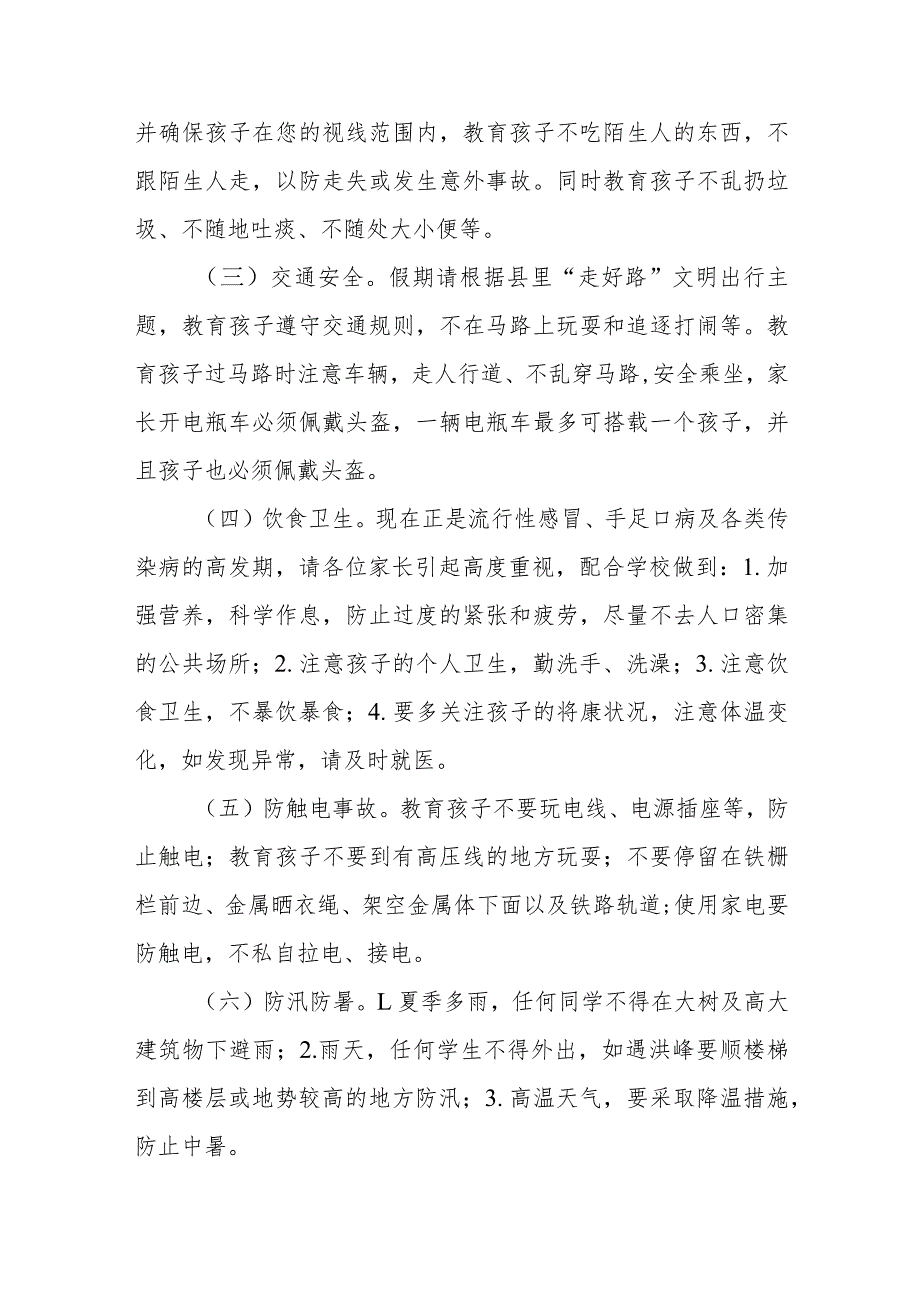 并确保孩子在您的视线范围内，教育孩子不吃陌生人的东西，不
跟陌生人走，以防走失或发生意外事故。同时教育孩子不乱扔垃
圾、不随地吐痰、不随处大小便等。
（三）交通安全。假期请根据县里“走好路”文明出行主
题，教育孩子遵守交通规则，不在马路上玩耍和追逐打闹等。教
育孩子过马路时注意车辆，走人行道、不乱穿马路,安全乘坐，家
长开电瓶车必须佩戴头盔，一辆电瓶车最多可搭载一个孩子，并
且孩子也必须佩戴头盔。
（四）饮食卫生。现在正是流行性感冒、手足口病及各类传
染病的高发期，请各位家长引起高度重视，配合学校做到：1. 加
强营养，科学作息，防止过度的紧张和疲劳，尽量不去人口密集
的公共场所；2. 注意孩子的个人卫生，勤洗手、洗澡；3. 注意饮
食卫生，不暴饮暴食；4. 要多关注孩子的将康状况，注意体温变
化，如发现异常，请及时就医。
（五）防触电事故。教育孩子不要玩电线、电源插座等，防
止触电；教育孩子不要到有高压线的地方玩耍；不要停留在铁栅
栏前边、金属晒衣绳、架空金属体下面以及铁路轨道;使用家电要
防触电，不私自拉电、接电。
（六）防汛防暑。L 夏季多雨，任何同学不得在大树及高大
建筑物下避雨；2.雨天，任何学生不得外出，如遇洪峰要顺楼梯
到高楼层或地势较高的地方防汛；3. 高温天气，要采取降温措施，
防止中暑。